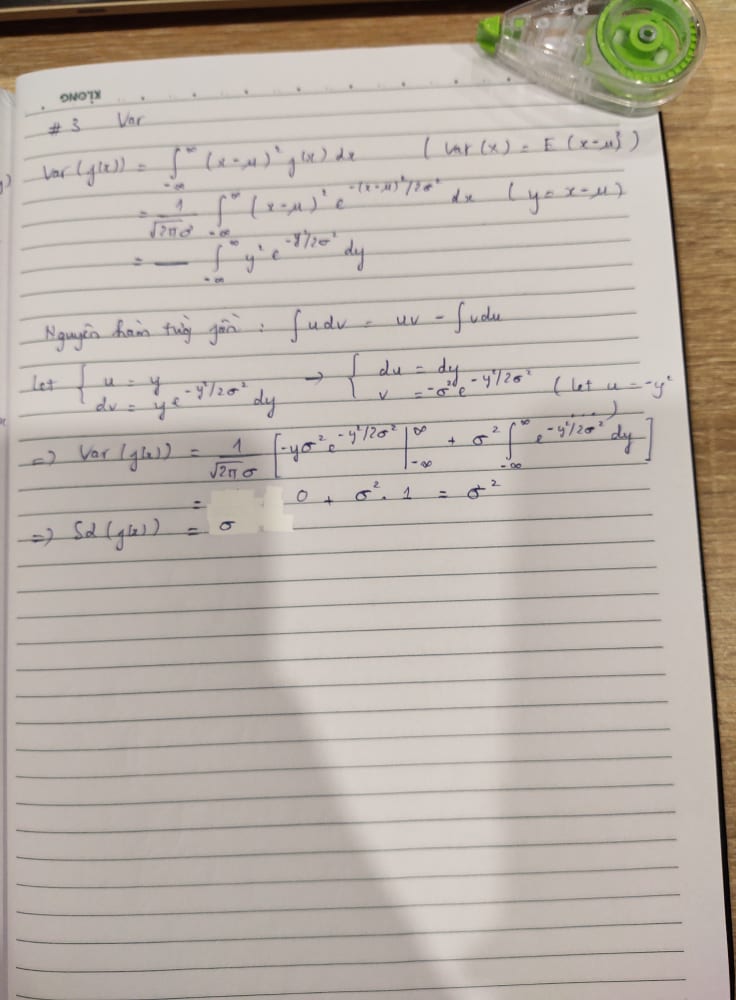 KLONG
# 3 Var
Var(g(x)) = ∫_{-∞}^{∞} (x-μ)² g(x) dx ( Var(x) = E (x-μ)² )
= 1/(√2π σ) ∫_{-∞}^{∞} (x-μ)² e^{-(x-μ)²/2σ²} dx ( y = x-μ )
= — ∫_{-∞}^{∞} y² e^{-y²/2σ²} dy
Nguyên hàm từng phần : ∫udv = uv - ∫vdu
Let { u = y → { du = dy
dv = y e^{-y²/2σ²} dy v = -σ² e^{-y²/2σ²} ( let u = -y²
....)
=> Var(g(x)) = 1/(√2π σ) [ -yσ² e^{-y²/2σ²} |_{-∞}^{∞} + σ² ∫_{-∞}^{∞} e^{-y²/2σ²} dy ]
= 0 + σ². 1 = σ²
=> Sd(g(x)) = σ